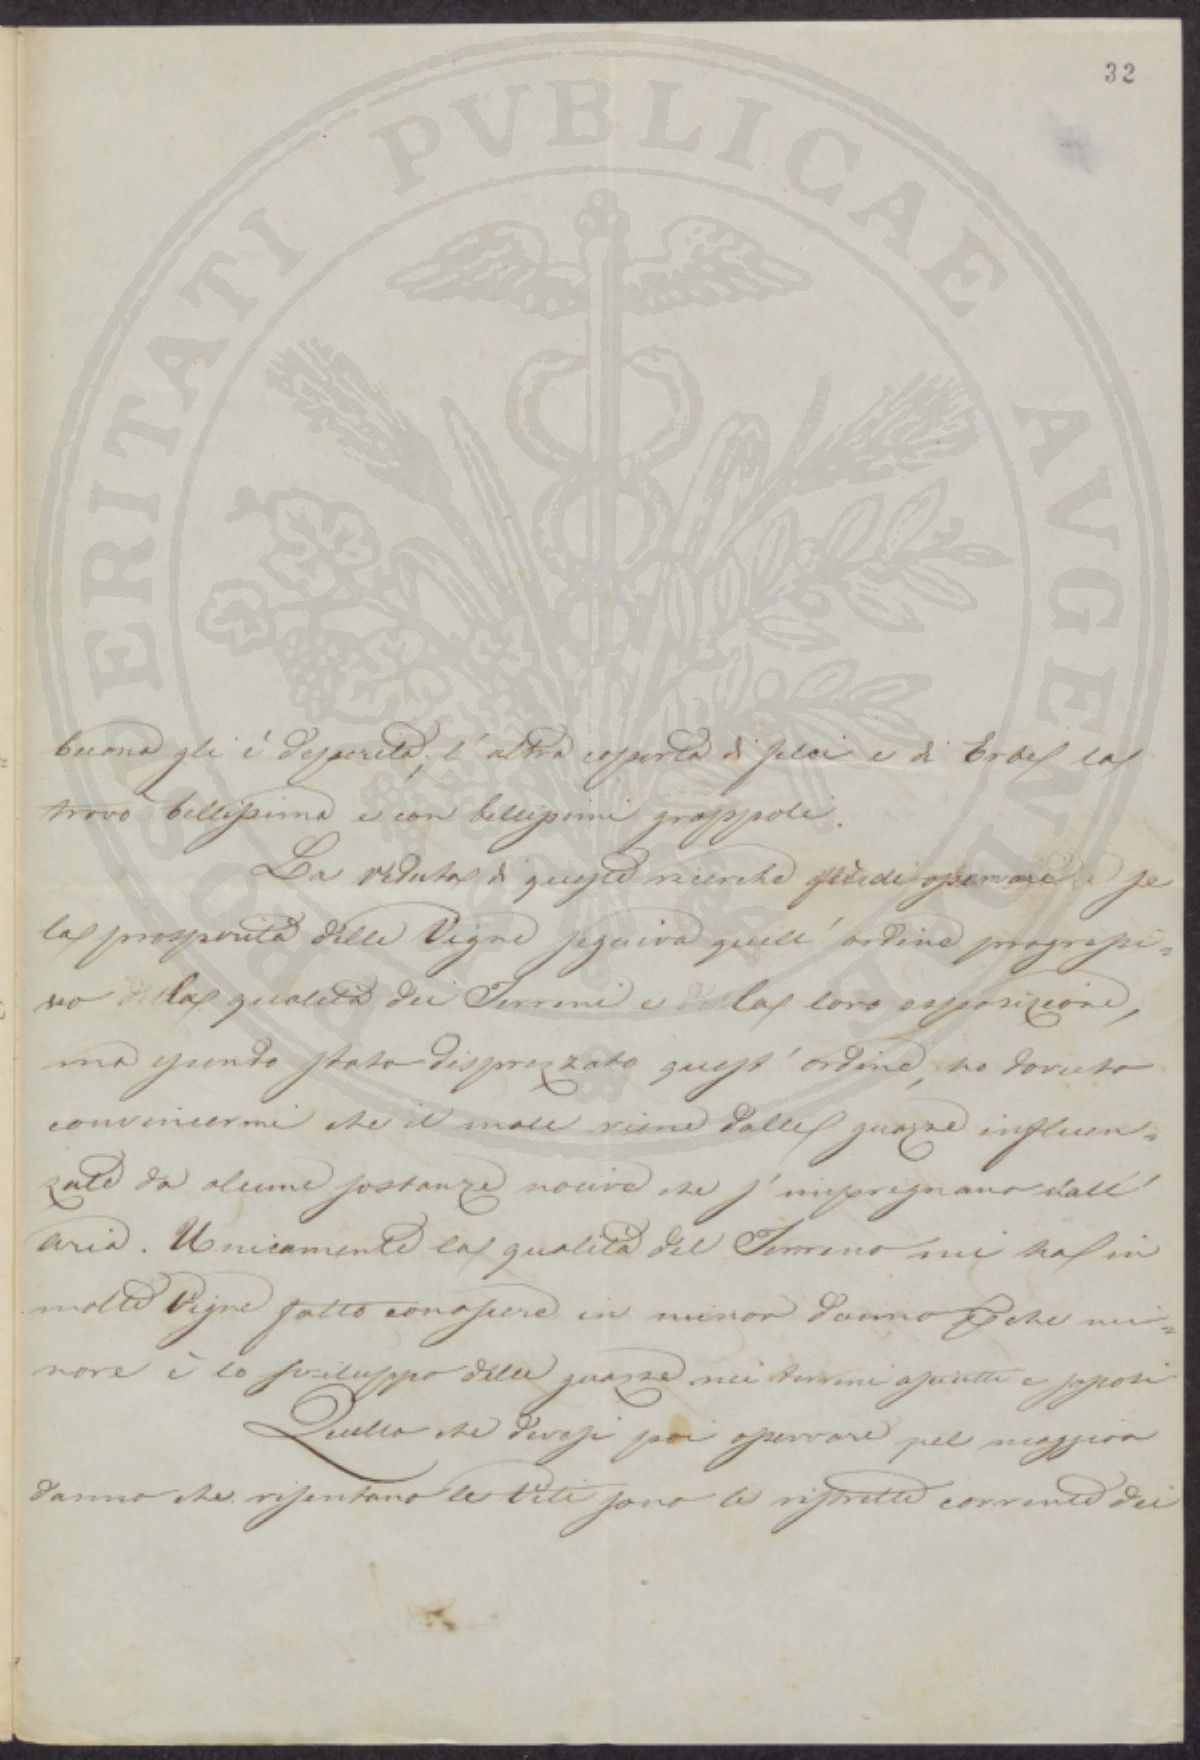 32
PROSPERITATI PVBLICAE AVGENDAE
buona gli è deperita, l'altra coperta di felci e di Erbe la
trovò bellissima e con bellissimi grappoli.
La veduta di queste ricerche di osservare se
la prosperità delle Vigne seguiva quell'ordine progressi=
vo della qualità dei Terreni e della loro esposizione,
ma essendo stato disprezzato quest'ordine, ho dovuto
convincermi che il male viene dalle guazze influen=
zate da alcune sostanze nocive che s'impregnano dall'
aria. Unicamente la qualità del Terreno mi ha in
molte Vigne fatto conoscere in minor danno che mi=
nore è lo sviluppo delle guazze nei terreni asciutti e
Quello che devesi poi osservare pel maggior
danno che risentano le Viti sono le ristrette correnti dei